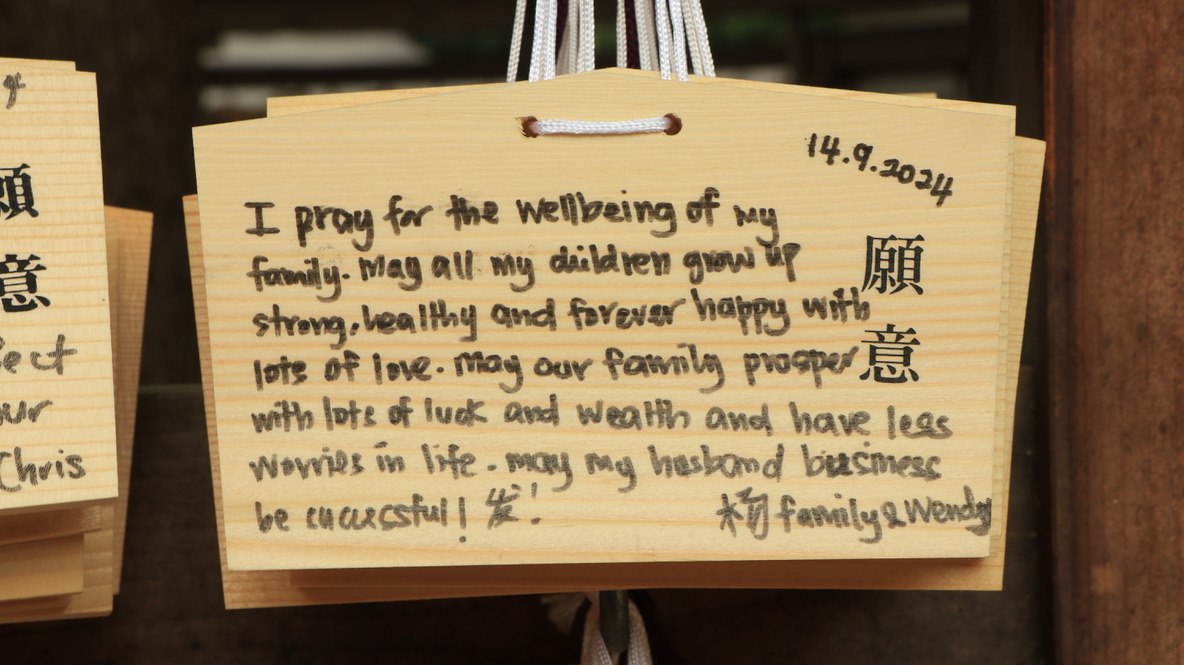 14.9.2024
願意
I pray for the wellbeing of my
family. May all my children grow up
strong, healthy and forever happy with
lots of love. May our family prosper
with lots of luck and wealth and have less
worries in life. may my husband business
be successful! 发!
杨 family & Wendy
願
意
ect
ur
Chris